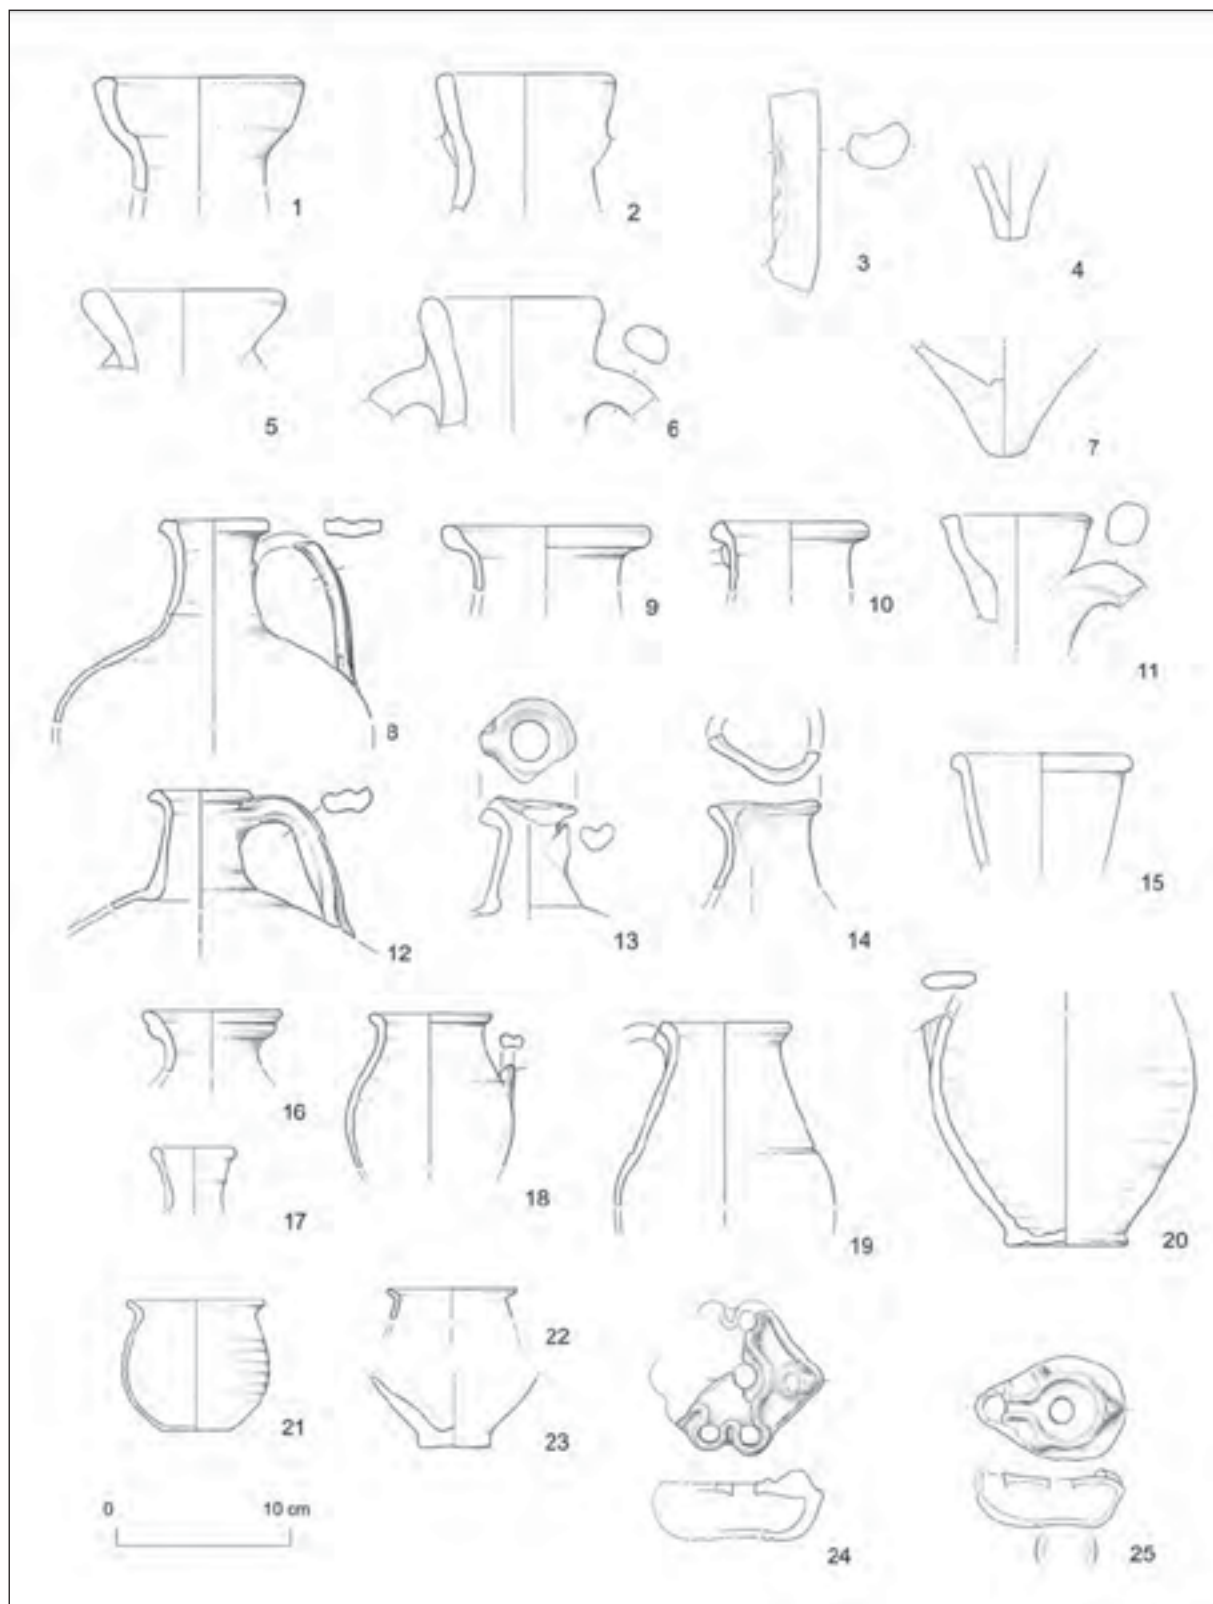 1
2
3
4
5
6
7
8
9
10
11
12
13
14
15
16
17
18
19
20
21
22
23
24
25
0 10 cm